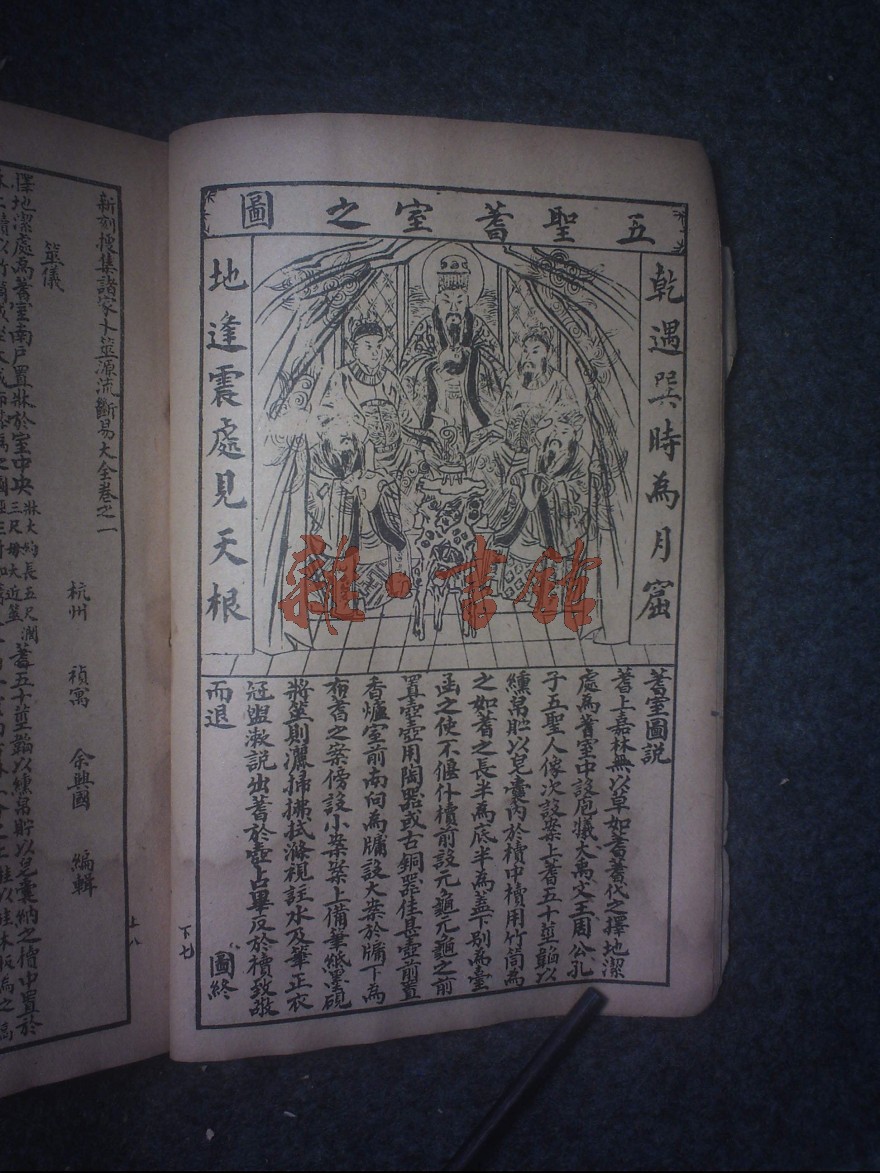 五聖蓍室之圖
乾遇巽時為月窟
地逢震處見天根
蓍室圖説
蓍上嘉林無以草如蓍蓍代之擇地潔
處為蓍室中設庖犧大禹文王周公孔
子五聖人像次設案上蓍五十莖韜以
纁帛貯以皂囊内於櫝中櫝用竹筒為
之如蓍之長半為底半為蓋下別為臺
函之使不偃仆櫝前設元龜元龜之前
置壺壺用陶器或古銅器佳甚壺前置
香爐室前南向為牖設大案於牖下為
布蓍之案傍設小案案上備筆紙墨硯
將筮則灑掃拂拭滌視註水及筆正衣
冠盥漱説出蓍於壺占畢反於櫝致敬
而退
圖終
下七
新刻搜集諸家卜筮源流斷易大全卷之一
杭州 禎寓 余興國 編輯
筮儀
擇地潔處為蓍室南戶置牀於室中央牀大約長五尺濶三尺毋大近蓍五十莖韜以纁帛貯以皂囊納之櫝中置於
上八
雜·書館